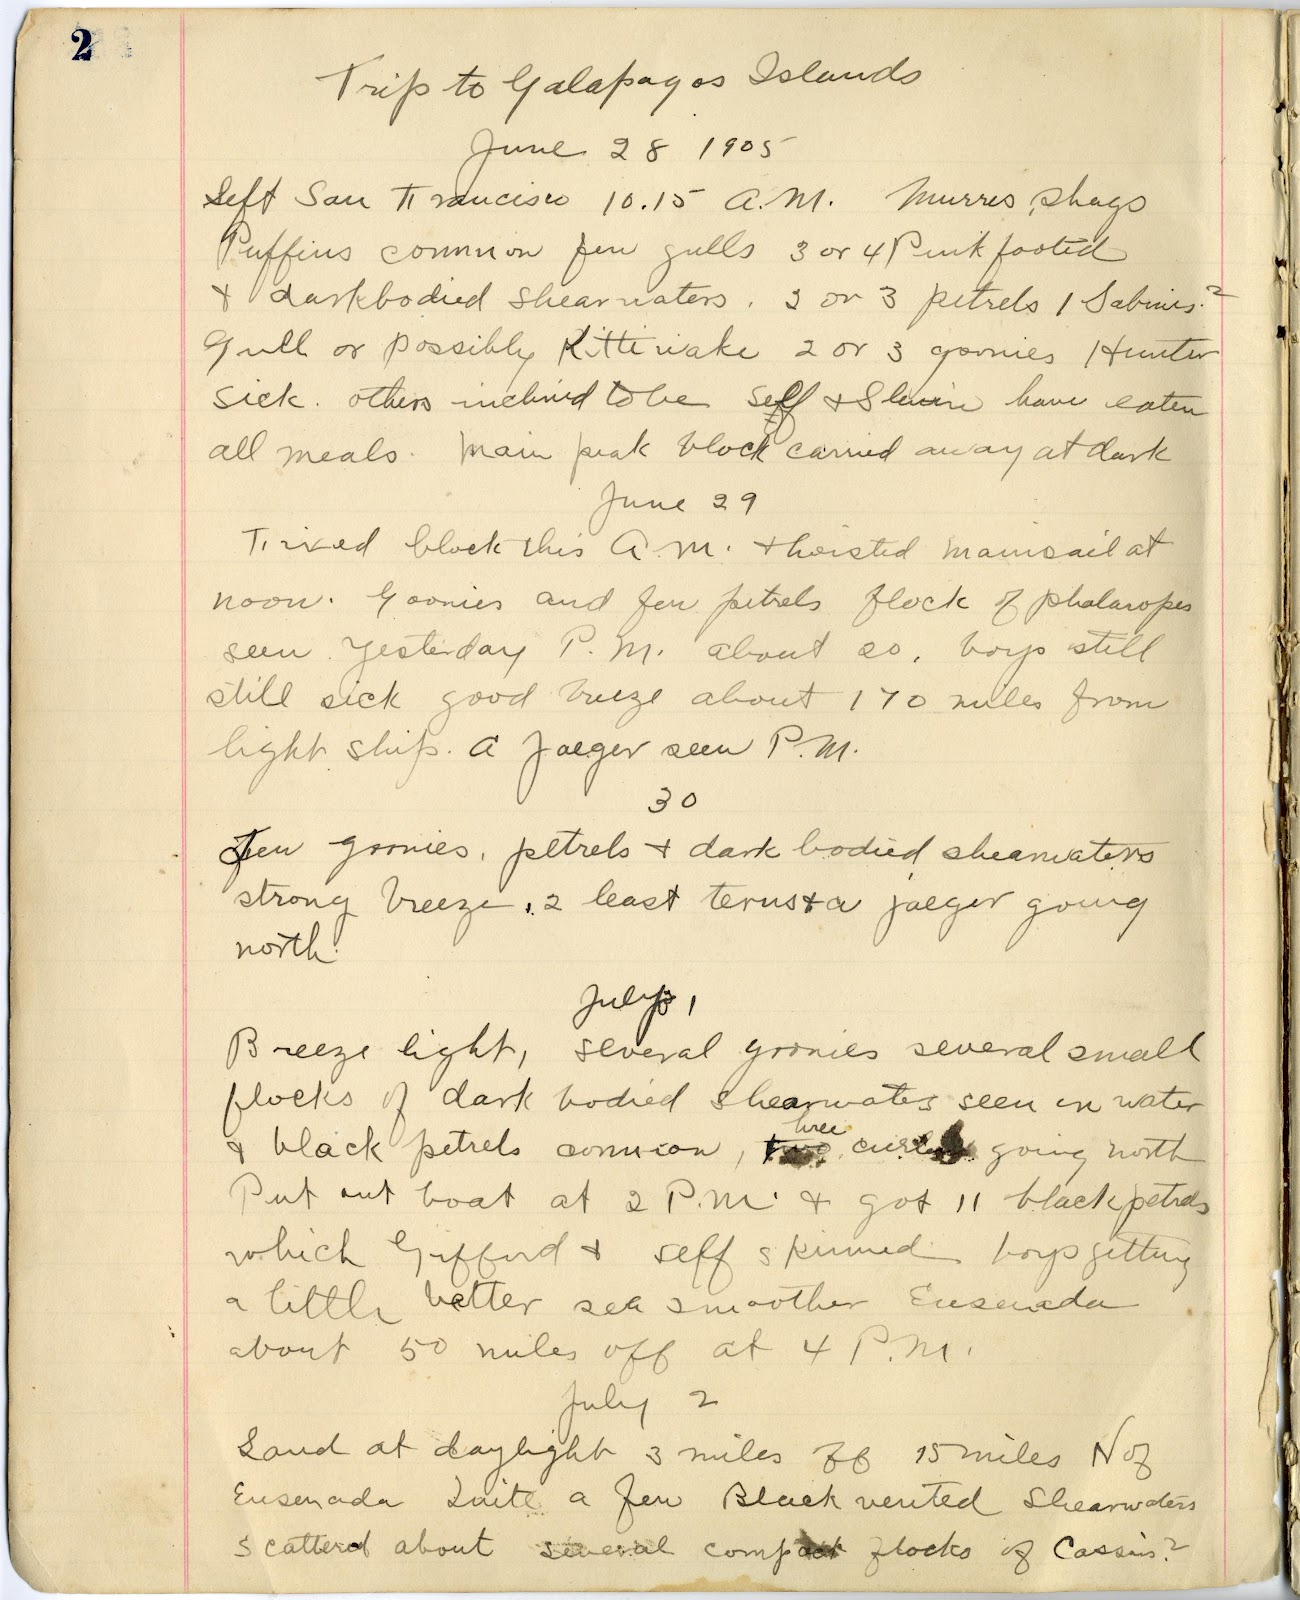 2
Trip to Galapagos Islands
June 28 1905
Left San Francisco 10.15 A.M. Murres, shags
Puffins common few gulls 3 or 4 Pink footed
& darkbodied shearwaters. 2 or 3 petrels 1 Sabines?
Gull or possibly Kittiwake 2 or 3 goonies Hunter
sick. others inclined to be self & Slevin have eaten
all meals. Main peak block carried away at dark
June 29
Fixed block this A.M. & hoisted mainsail at
noon. Goonies and few petrels flock of phalaropes
seen yesterday P.M. about 20. boys still
still sick good breeze about 170 miles from
light ship. A Jaeger seen P.M.
30
Few goonies, petrels & dark bodied shearwaters
strong breeze, 2 least terns & a jaeger going
north.
July 1
Breeze light, several goonies several small
flocks of dark bodied shearwaters seen on water
& black petrels common, two three going north
Put out boat at 2 P.M. & got 11 black petrels
which Gifford & self skinned boys getting
a little better sea smoother Ensenada
about 50 miles off at 4 P.M.
July 2
Land at daylight 3 miles off 15 miles N of
Ensenada Quite a few Black vented Shearwaters
scatterd about several compact flocks of Cassins?